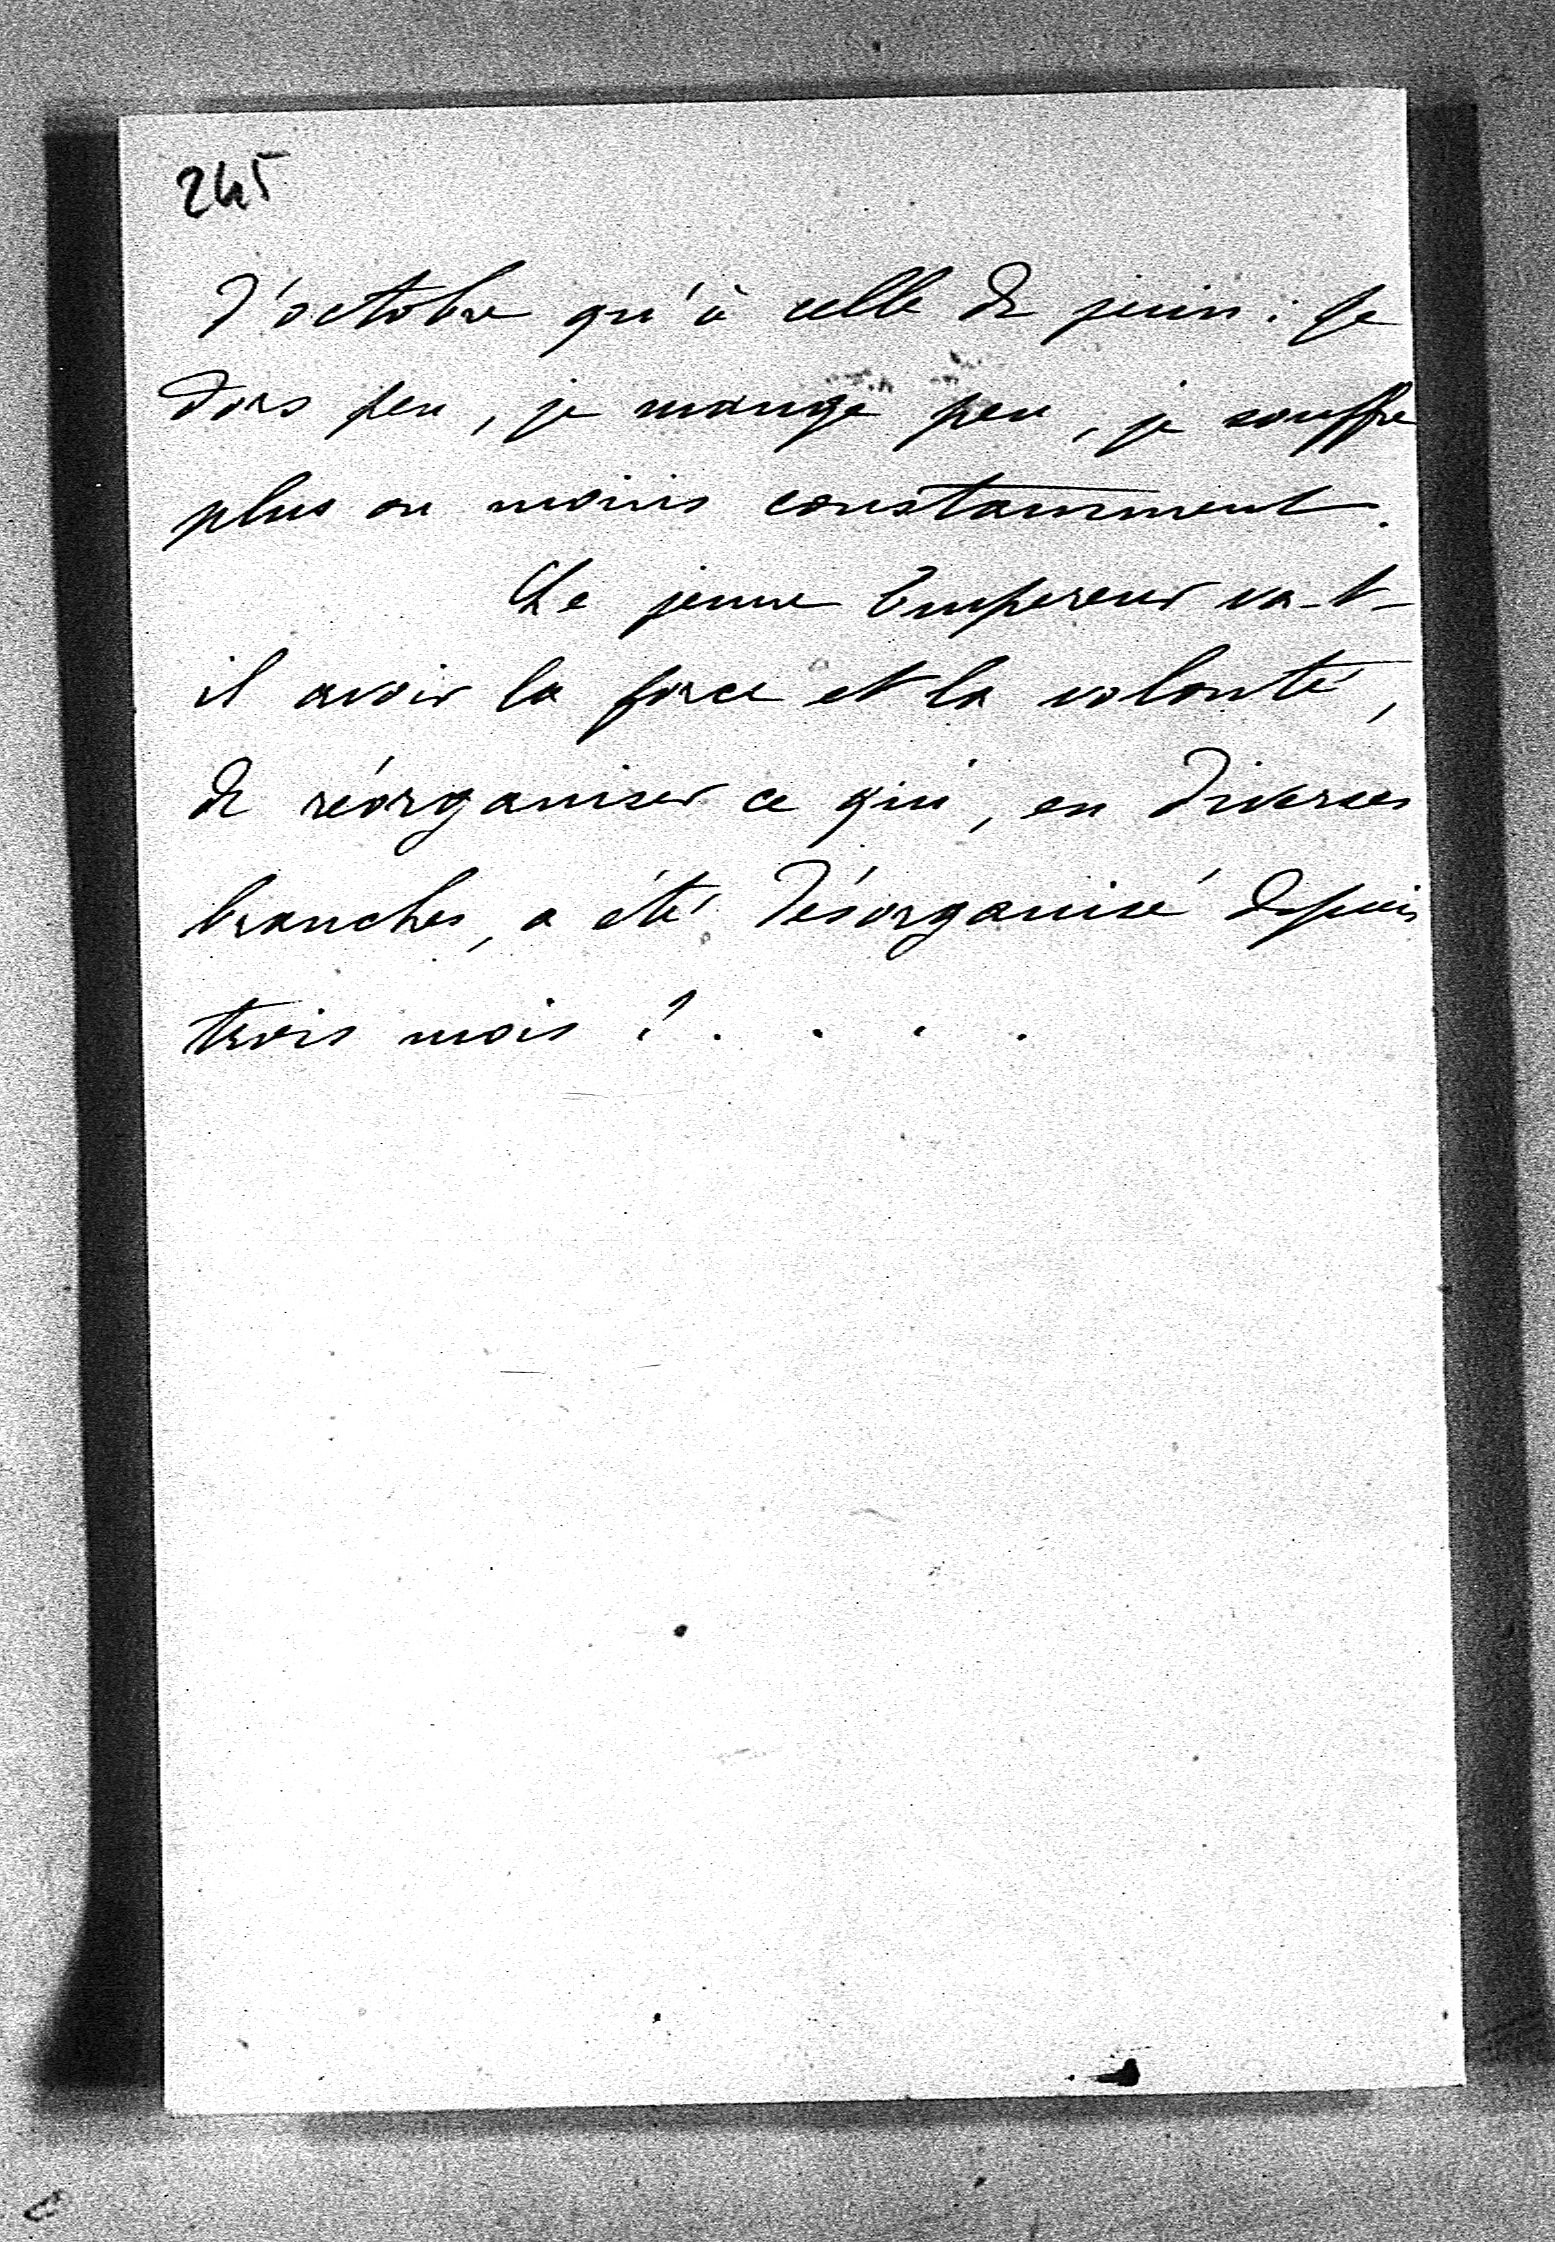 245
d'octobre qu'à celle de juin : je
dors peu, je mange peu, je souffre
plus ou moins constamment.
Le jeune Empereur va-t-
il avoir la force et la volonté,
de réorganiser ce qui, en diverses
branches, a été désorganisé depuis
trois mois ? . . . .